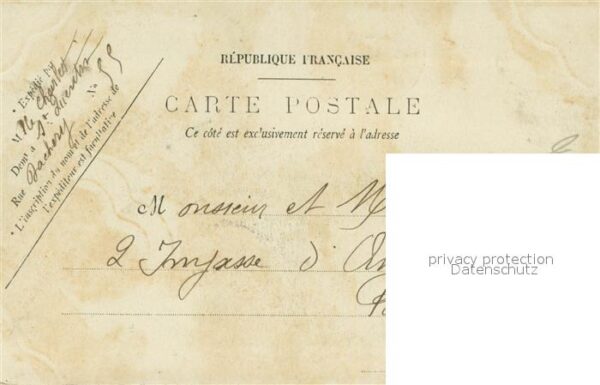 RÉPUBLIQUE FRANÇAISE
CARTE POSTALE
Ce côté est exclusivement réservé à l'adresse
* Expédié par
M Charles
Demt à St
Rue N° 55
* L'inscription du nom et de l'adresse de
l'expéditeur est facultative
Monsieur et M
2 Impasse d'
privacy protection
Datenschutz